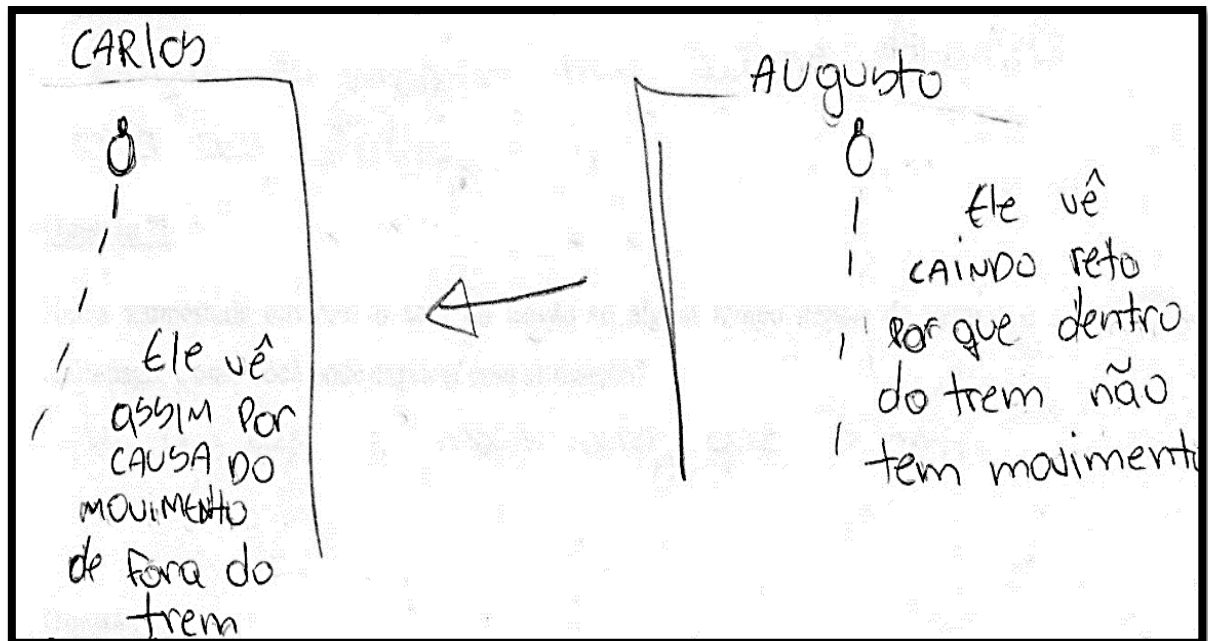 CARlos
Ele vê
assim por
CAUSA DO
MOVIMENTO
de fora do
trem
AUgusto
Ele vê
CAINDO reto
Porque dentro
do trem não
tem movimento